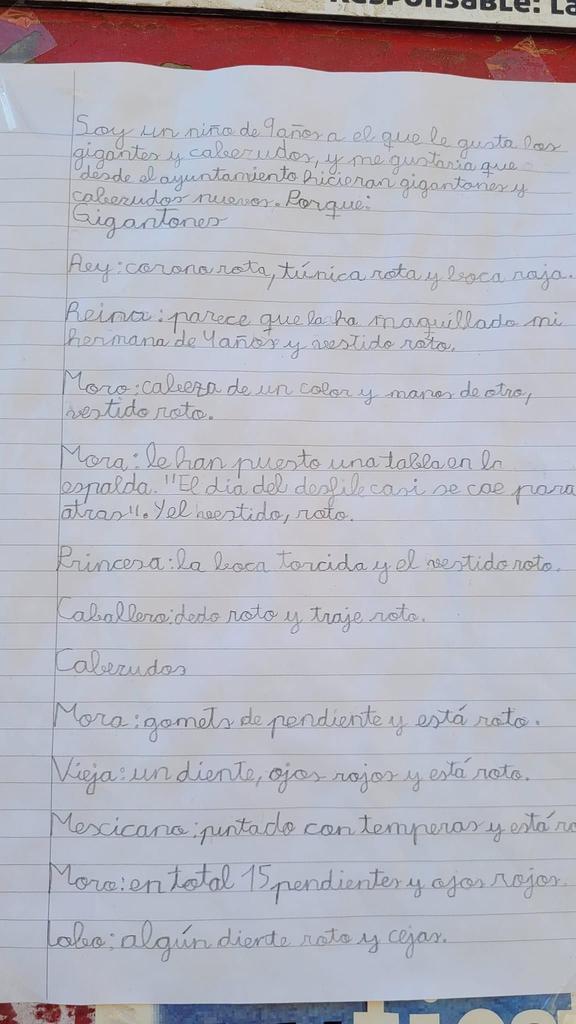 RESPONSABLE: La
Soy un niño de 9 años a el que le gusta los
gigantes y cabezudos, y me gustaria que
desde el ayuntamiento hicieran gigantones y
cabezudos nuevos. Porque:
Gigantones
Rey: corona rota, túnica rota y boca roja.
Reina: parece que la ha maquillado mi
hermana de 4 años y vestido roto.
Moro: cabeza de un color y manos de otro,
vestido roto.
Mora: le han puesto una tabla en la
espalda. "El dia del desfile casi se cae para
atras". Y el vestido, roto.
Princesa: la boca torcida y el vestido roto.
Caballero: dedo roto y traje roto.
Cabezudos
Mora: gomets de pendiente y está roto.
Vieja: un diente, ojos rojos y está roto.
Mexicano: pintado con temperas y está ro
Moro: en total 15 pendientes y ojos rojos.
Lobo: algún diente roto y cejas.